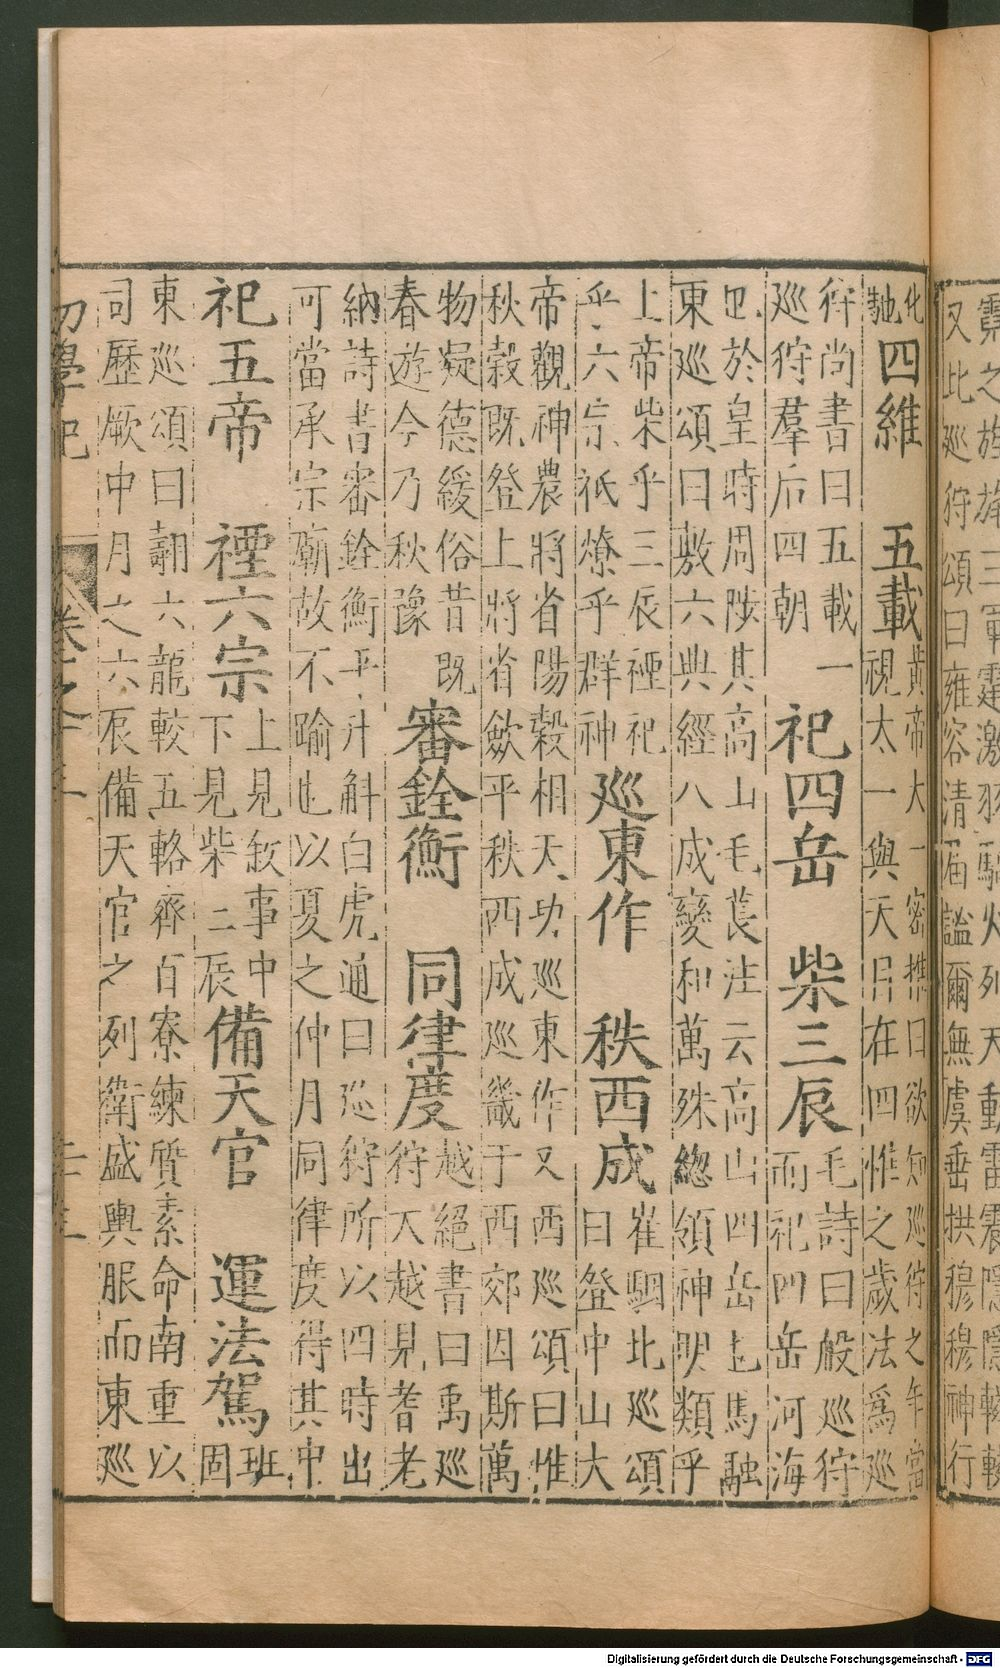 霓之旌旃三軍霆激羽騎火列天動雷震隱隱轔轔
又北巡狩頌曰雍容清廟謐爾無虞垂拱穆穆神行
化
馳
四維　五載
黃帝太一密推曰欲知巡狩之年當
視太一與天目在四惟之歲法為巡
狩尚書曰五載一
巡狩羣后四朝
祀四岳　柴三辰
毛詩曰般巡狩
而祀四岳河海
也於皇時周陟其高山毛萇注云高山四岳也馬融
東巡頌曰敷六典經八成變和萬殊總領神明類乎
上帝柴乎三辰禋祀
乎六宗祇燎乎群神
巡東作　秩西成
崔駰北巡頌
曰登中山大
帝觀神農將省陽穀相天功巡東作又西巡頌曰惟
秋穀既登上將省斂平秩西成巡畿于西郊因斯萬
物凝德緩俗昔既
春遊今乃秋豫
審銓衡　同律度
越絕書曰禹巡
狩大越見耆老
納詩書審銓衡平升斛白虎通曰巡狩所以四時出
可當承宗廟故不踰也以夏之仲月同律度得其中
祀五帝　禋六宗
上見敘事中
下見柴二辰
備天官　運法駕
班
固
東巡頌曰翿六龍較五輅齊百寮練質素命南重以
司歷厥中月之六辰備天官之列衛盛輿服而東巡
初學記　卷之十三
Digitalisierung gefördert durch die Deutsche Forschungsgemeinschaft - DFG